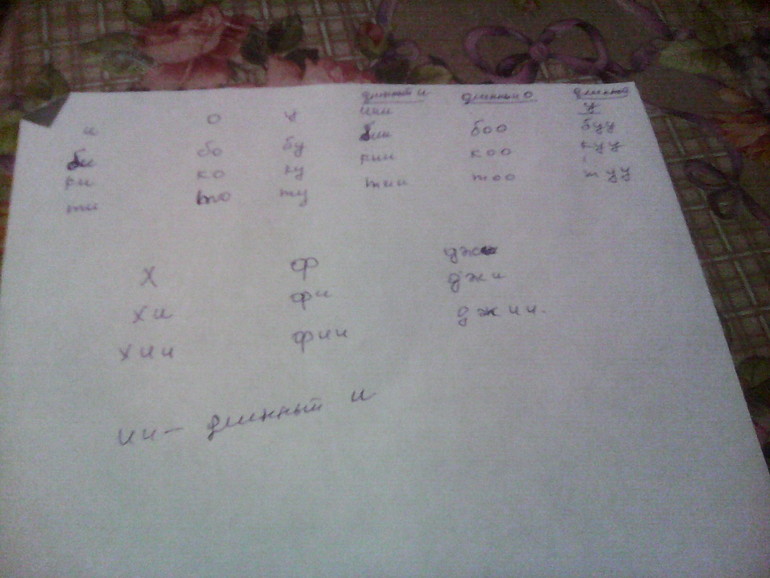 и о у длинный и длинный о длинный у
ии
би бо бу бии боо буу
ки ко ку кии коо куу
ти то ту тии тоо туу
х ф дж
хи фи джи
хии фии джии.
ии - длинный и